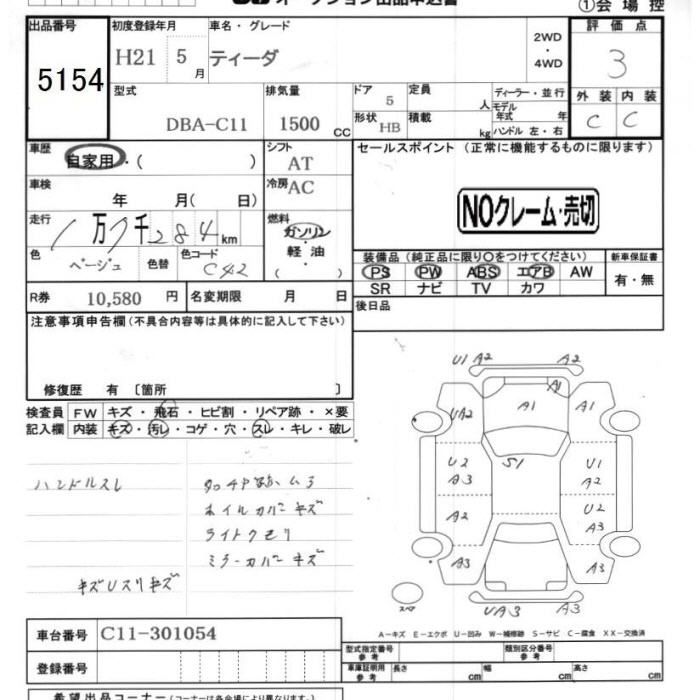 オークション出品申込書
①会場控
出品番号
初度登録年月
車名・グレード
評価点
H21 5月
ティーダ
2WD
・
4WD
3
5154
型式
排気量
ドア
5
定員
人
ディーラー・並行
モデル
年式 年
外装
内装
DBA-C11
1500 CC
形状 HB
積載
kg
ハンドル 左・右
C
C
車歴
自家用・( )
シフト
AT
セールスポイント (正常に機能するものに限ります)
車検
年 月( 日)
冷房 AC
NOクレーム・売切
走行
1万7千284km
燃料
ガソリン
軽油
( )
色
ベージュ
色替
色コード
C42
装備品 (純正品に限り○をつけてください)
新車保証書
PS PW ABS エアB AW
SR ナビ TV カワ
有・無
R券 10,580 円
名変期限 月 日
後日品
注意事項申告欄(不具合内容等は具体的に記入して下さい)
修復歴 有 〔箇所 〕
検査員
記入欄
FW キズ・飛石・ヒビ割・リペア跡・×要
内装 キズ・汚レ・コゲ・穴・スレ・キレ・破レ
ハンドルスレ
ホイルカバーキズ
ライトクモリ
ミラーカバーキズ
キズUスリキズ
U1 A2
A2
A1
UA2
A1
A1
U2
A3
S1
U1
A2
A2
U2
A3
A3
A3
スペア
UA3
A3
A-キズ E-エクボ U-凹み W-補修跡 S-サビ C-腐食 XX-交換済
車台番号 C11-301054
型式指定番号
参考
類別区分番号
参考
登録番号
車庫証明用
参考
長さ cm
幅 cm
高さ cm
希望出品コーナー(コーナーは各会場により異なります)